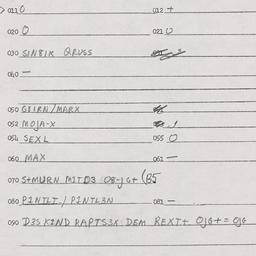 011 0 012 +
020 0 021 0
030 SINBIK QRUSS
040 —
050 GEIRN/MARX
052 MOJA-X
054 SEXL 055 0
060 MAX 061 —
070 S+MURN MITD3 08-JG+ (B5
080 P2NILT. / P2NTL3N 081 —
090 D3S KIND RAPTS3X DEM REXT+ 0JG+ = 0JG